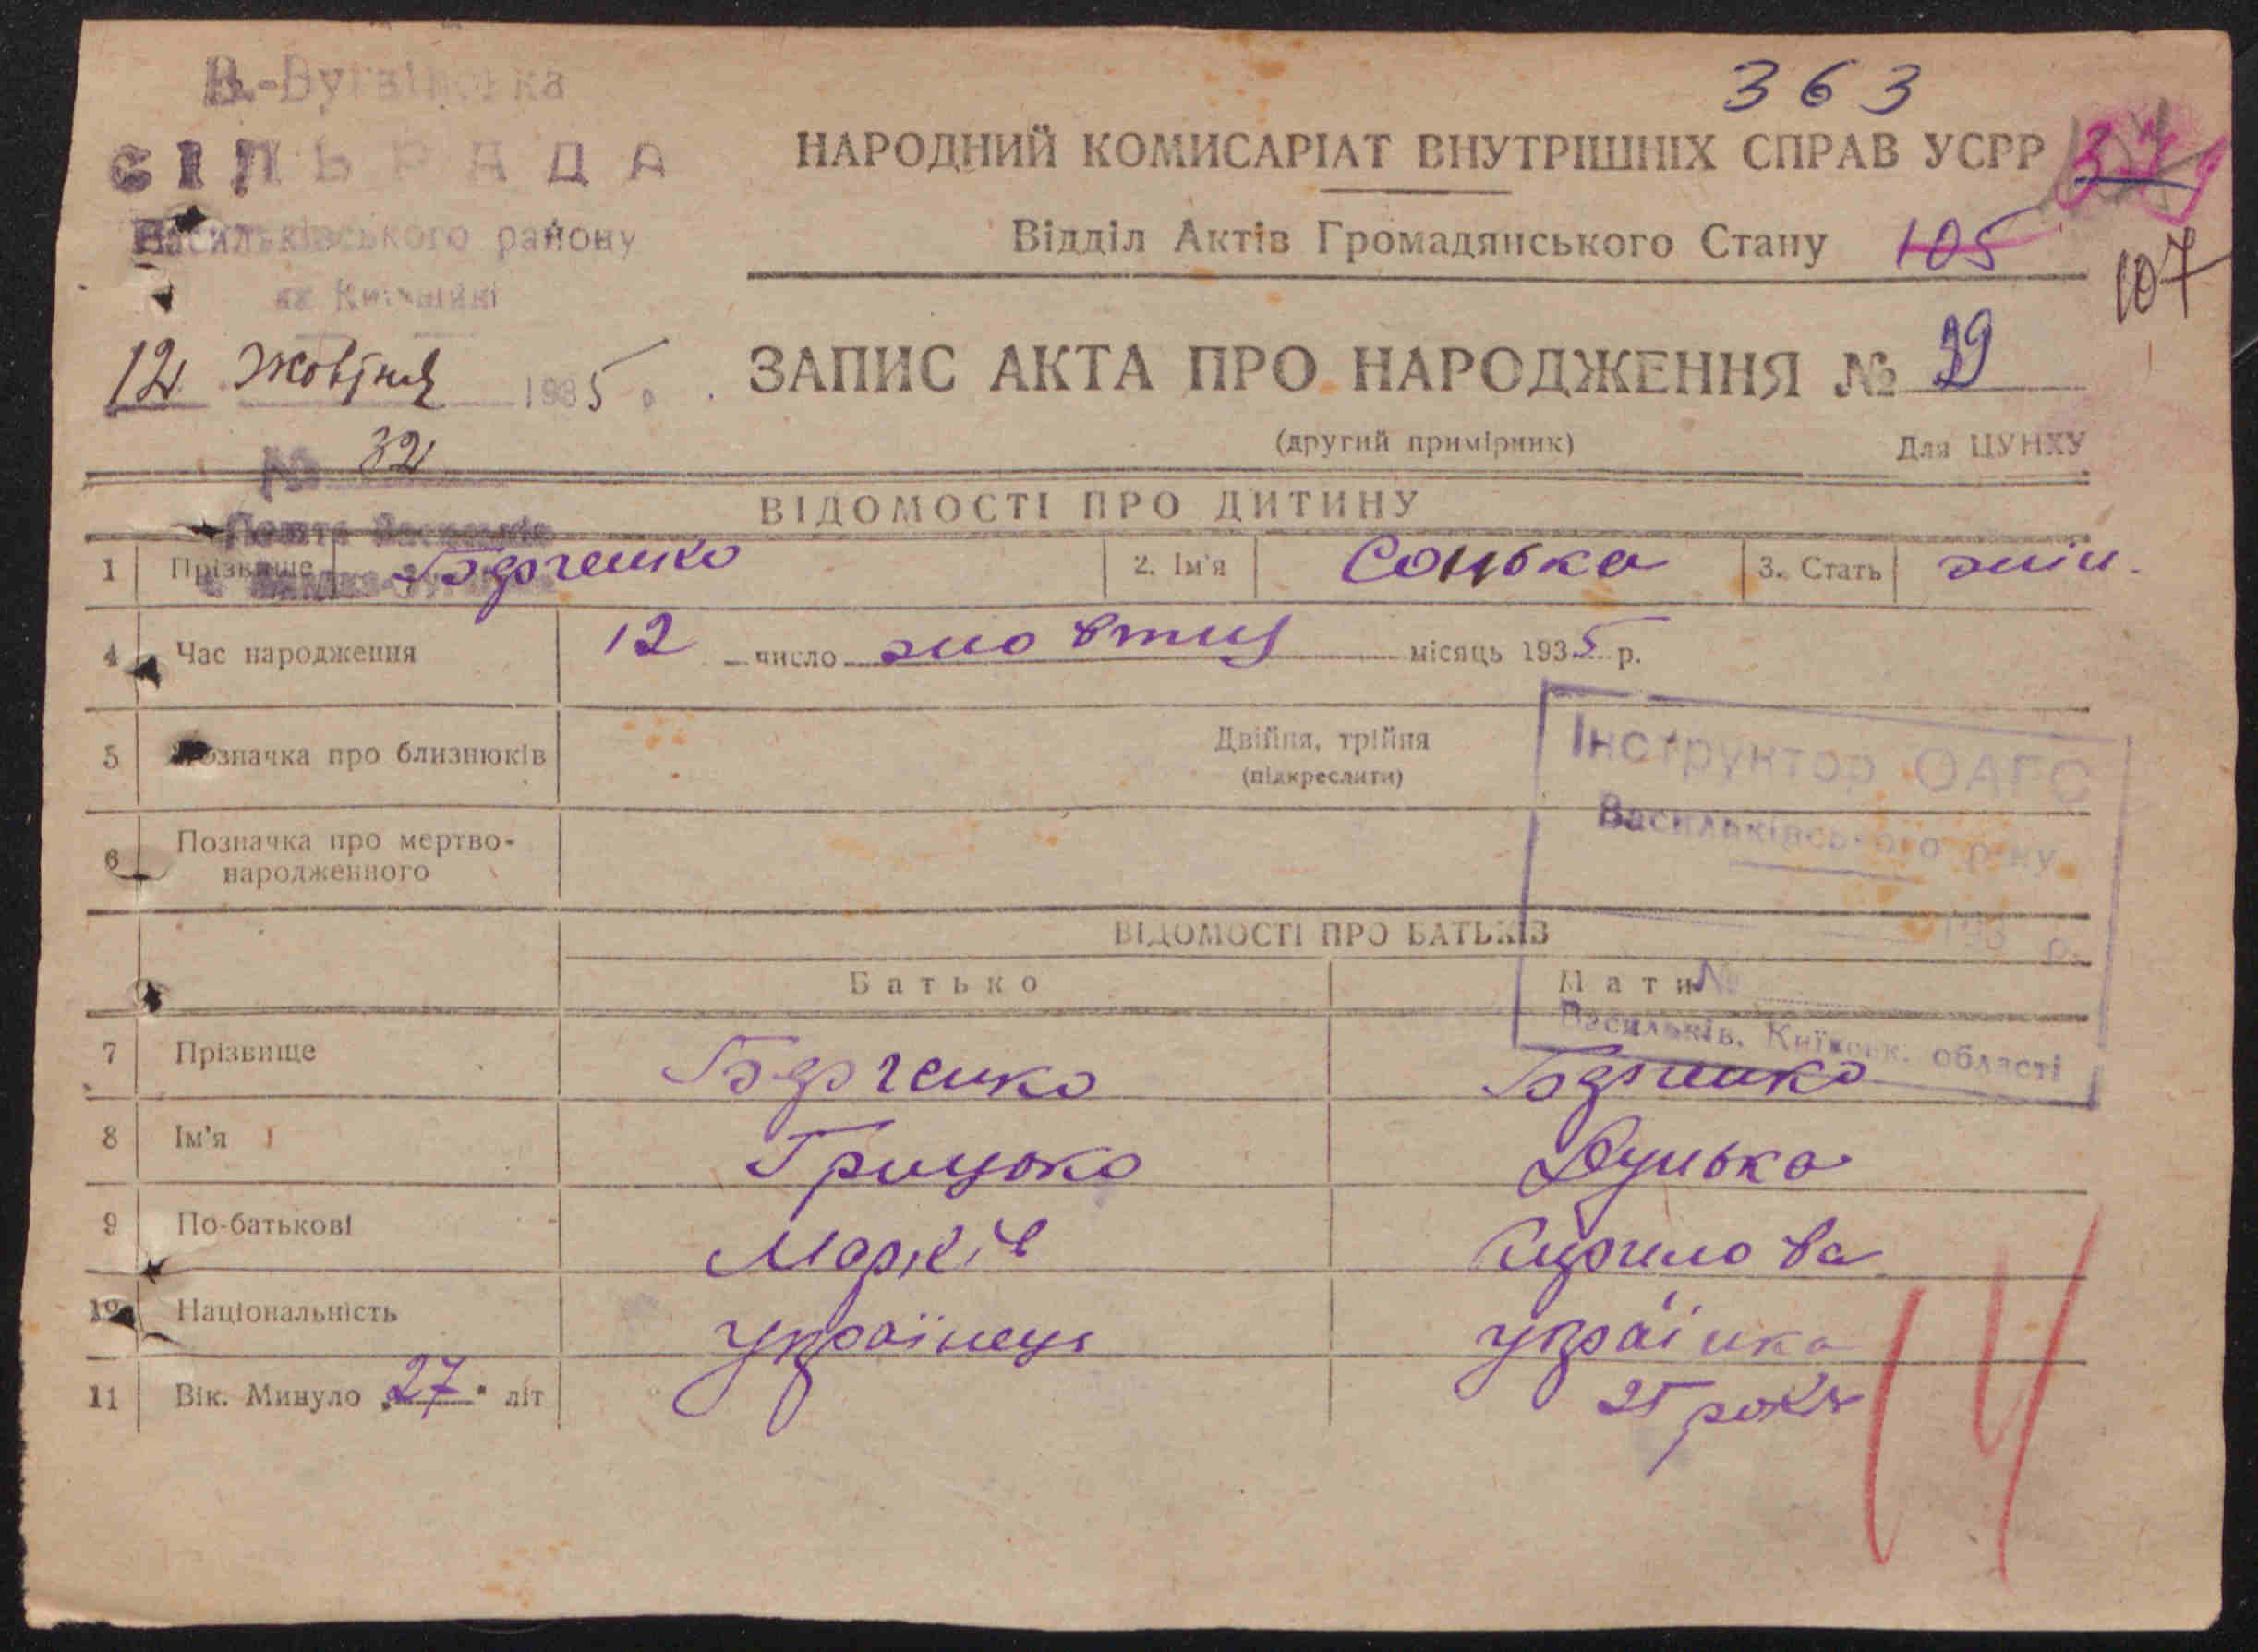 363
СІЛЬРАДА
НАРОДНИЙ КОМИСАРІАТ ВНУТРІШНІХ СПРАВ УСРР
Васильківського району
Відділ Актів Громадянського Стану 105
107
на Київщині
12 жовтня 1935 р.
ЗАПИС АКТА ПРО НАРОДЖЕННЯ № 39
(другий примірник) Для ЦУНХУ
№ 32
ВІДОМОСТІ ПРО ДИТИНУ
Пошта Васильків
1 Прізвище 2. Ім'я Сонька 3. Стать жін.
4 Час народження 12 число жовтня місяць 1935 р.
5 Позначка про близнюків Двійня, трійня
(підкреслити)
Інструктор ОАГС
Васильківського р-ну
6 Позначка про мертво-
народженного
193 р.
ВІДОМОСТІ ПРО БАТЬКІВ
Батько Мати
№
Васильків, Київськ. області
7 Прізвище
8 Ім'я Грицько Дунька
9 По-батькові Марків Кирилова
10 Національність українець українка
11 Вік. Минуло „27" літ 25 років
14